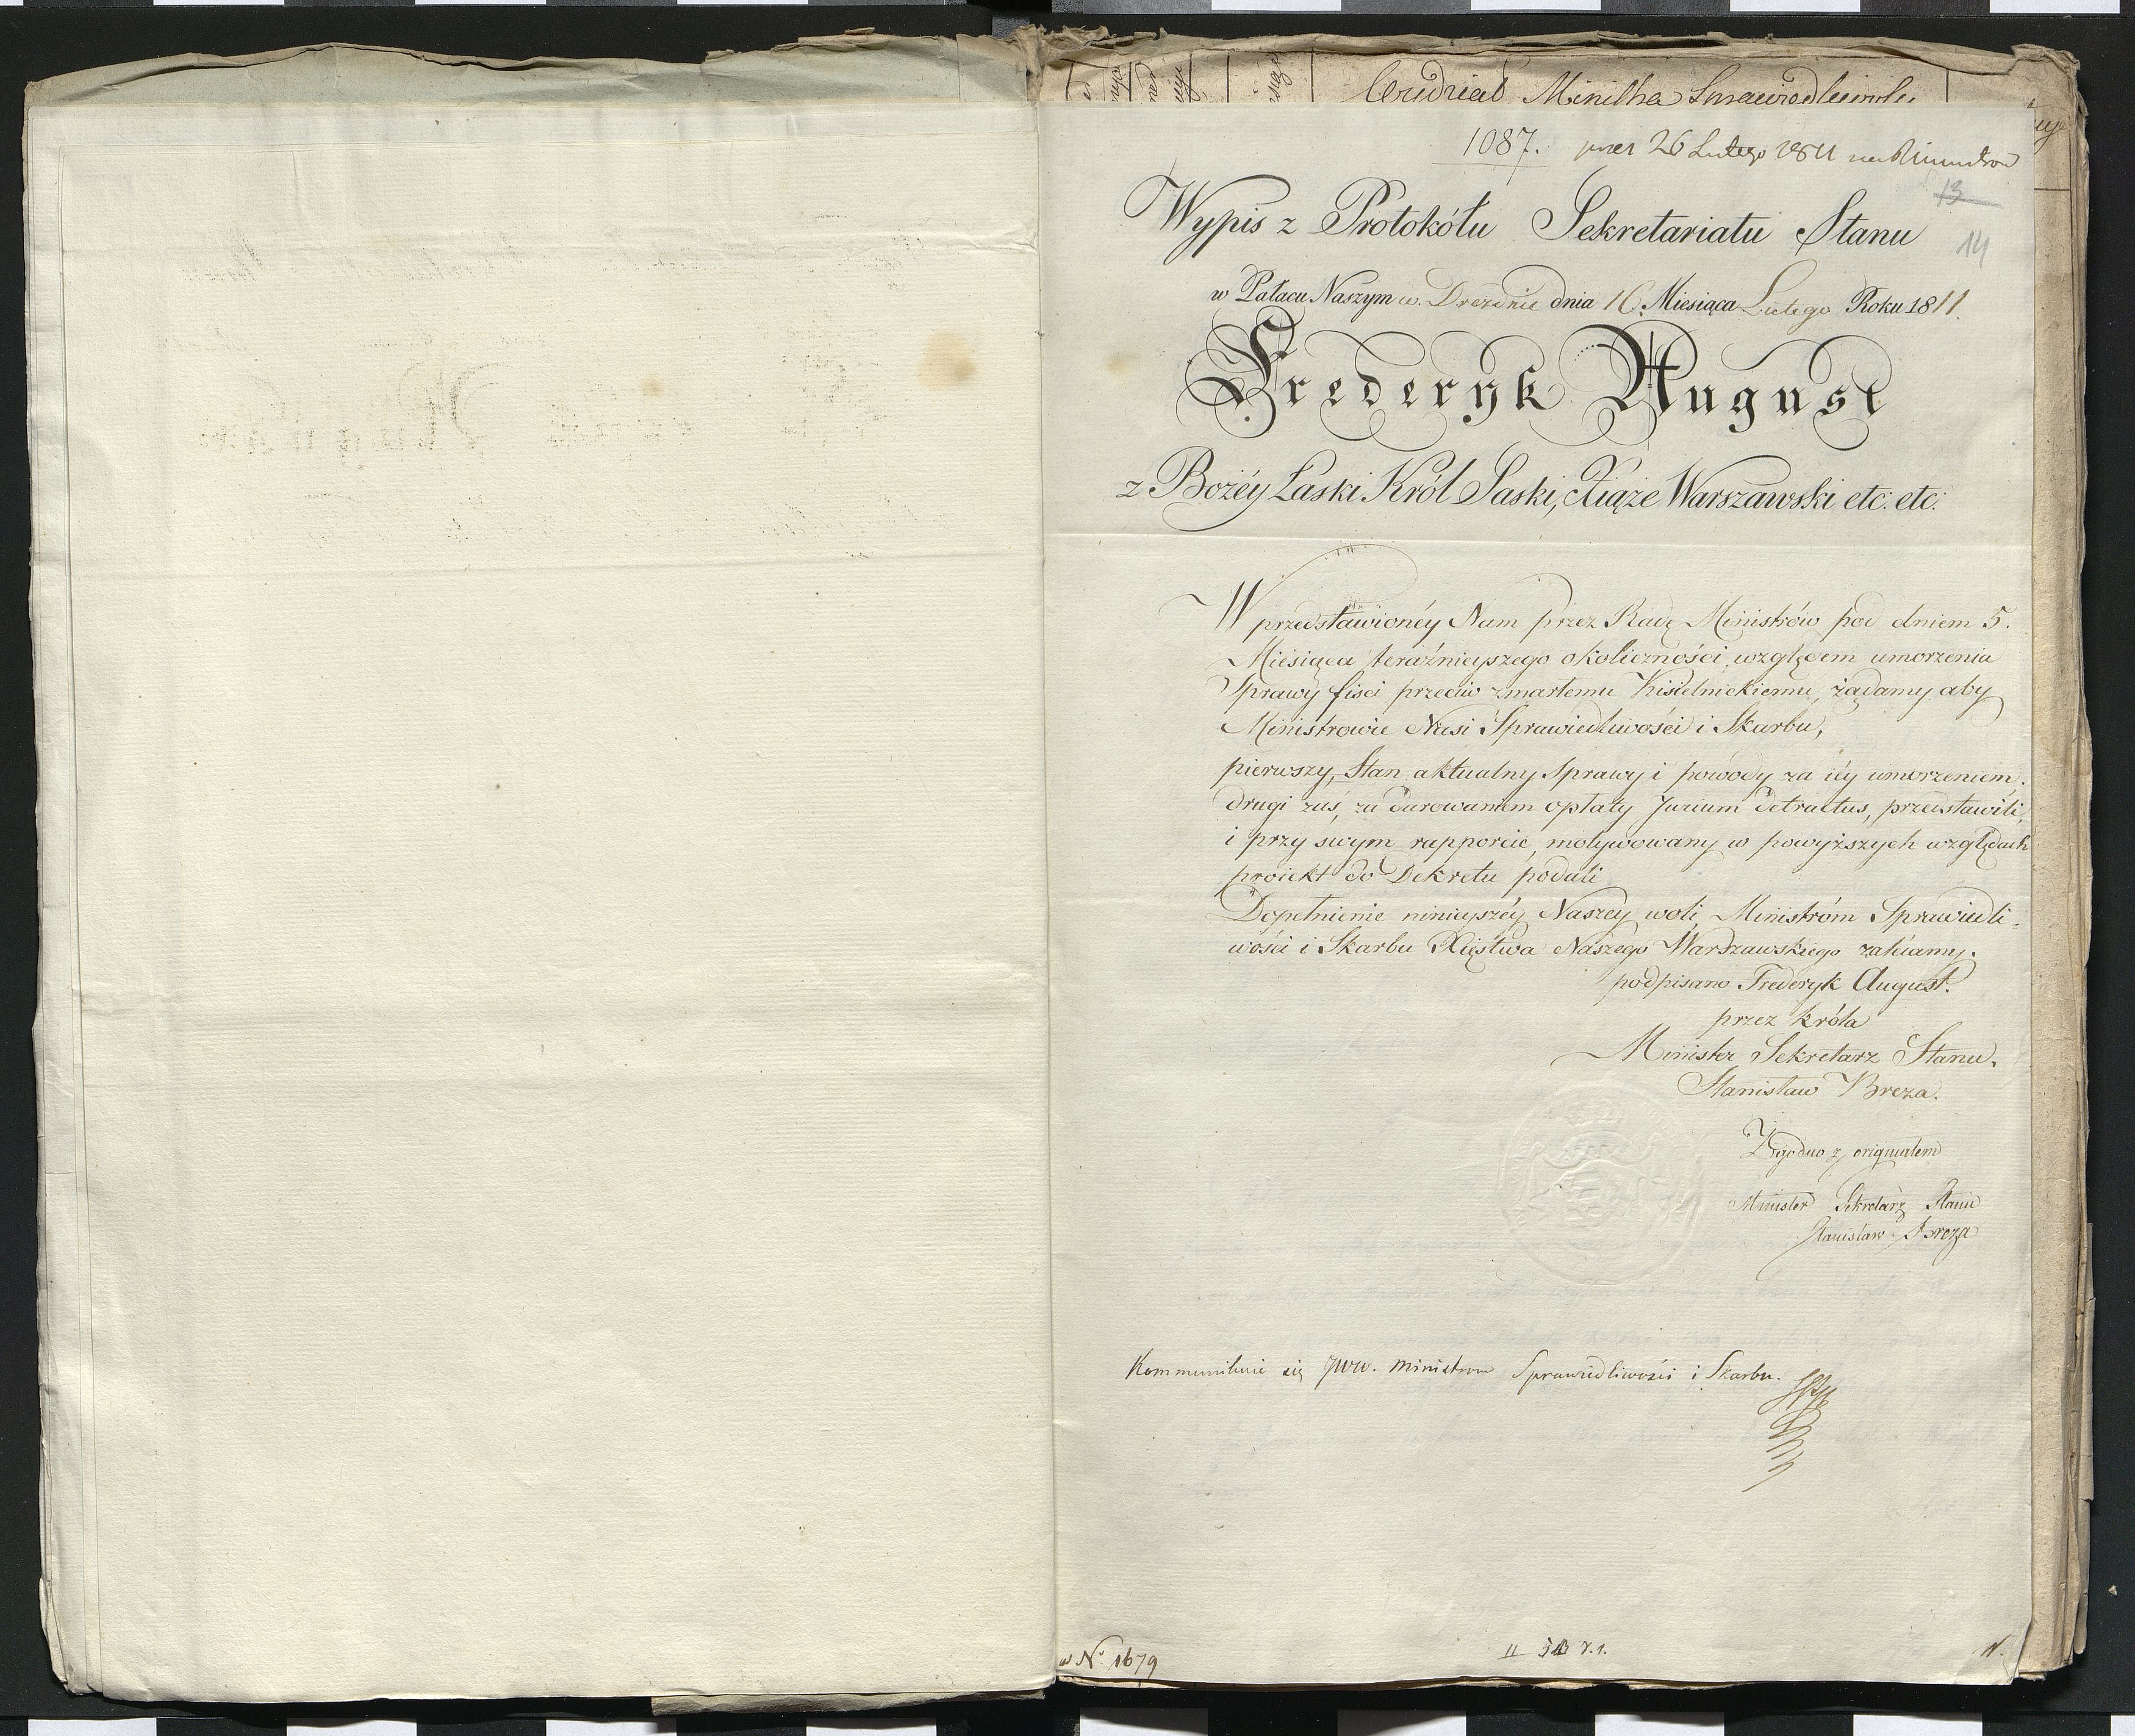 Wydział Ministra Sprawiedliwości
1087. 26 Lutego 1811
13
14
Wypis z Protokółu Sekretariatu Stanu
w Pałacu Naszym w Dreźnie dnia 16 Miesiąca Lutego Roku 1811.
Frederyk August
z Bożéy Łaski Król Saski, Xiąże Warszawski, etc. etc.
W przedstawionéy Nam przez Radę Ministrów pod dniem 5.
Miesiąca teraźnieyszego okoliczności, względem umorzenia
Sprawy fisci przeciw zmarłemu Kisielnickiemu, żądamy aby
Ministrowie Nasi Sprawiedliwości i Skarbu,
pierwszy, Stan aktualny Sprawy i powody za iéy umorzeniem.
drugi zaś, za darowaniem opłaty Jurium detractus, przedstawili,
i przy swym rapporcie, motywowany w powyższych względach
proiekt do Dekretu podali
Dopełnienie ninieyszéy Naszey woli, Ministróm Sprawiedli-
wości i Skarbu Xięstwa Naszego Warszawskiego zalecamy.
podpisano Frederyk August.
przez Króla
Minister Sekretarz Stanu.
Stanisław Breza.
Zgodno z originałem
Minister Sekretarz Stanu
Stanisław Breza
Kommunikuie się JWW. Ministrom Sprawiedliwości i Skarbu.
w No. 1679